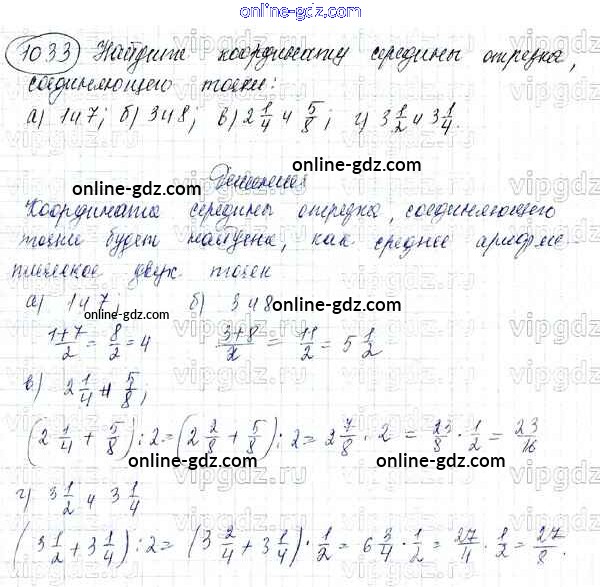 online-gdz.com
1033 Найдите координату середины отрезка,
соединяющего точки:
а) 1 и 7; б) 3 и 8; в) 2 1/4 и 5/8; г) 3 1/2 и 3 1/4.
Решение
online-gdz.com
Координата середины отрезка, соединяющего
точки будет найдена, как среднее арифме-
тическое двух точек
а) 1 и 7; б) 3 и 8
online-gdz.com
(1+7)/2 = 8/2 = 4 (3+8)/2 = 11/2 = 5 1/2
в) 2 1/4 и 5/8;
online-gdz.com
(2 1/4 + 5/8) : 2 = (2 2/8 + 5/8) : 2 = 2 7/8 · 2 = 23/8 · 1/2 = 23/16
online-gdz.com
г) 3 1/2 и 3 1/4
online-gdz.com
(3 1/2 + 3 1/4) : 2 = (3 2/4 + 3 1/4) · 1/2 = 6 3/4 · 1/2 = 27/4 · 1/2 = 27/8.
online-gdz.com